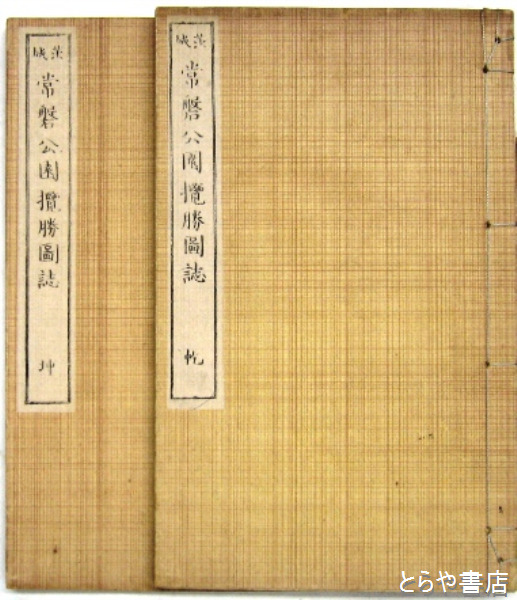 茨城
常磐公園攬勝圖誌
乾
茨城
常磐公園攬勝圖誌
坤
とらや書店